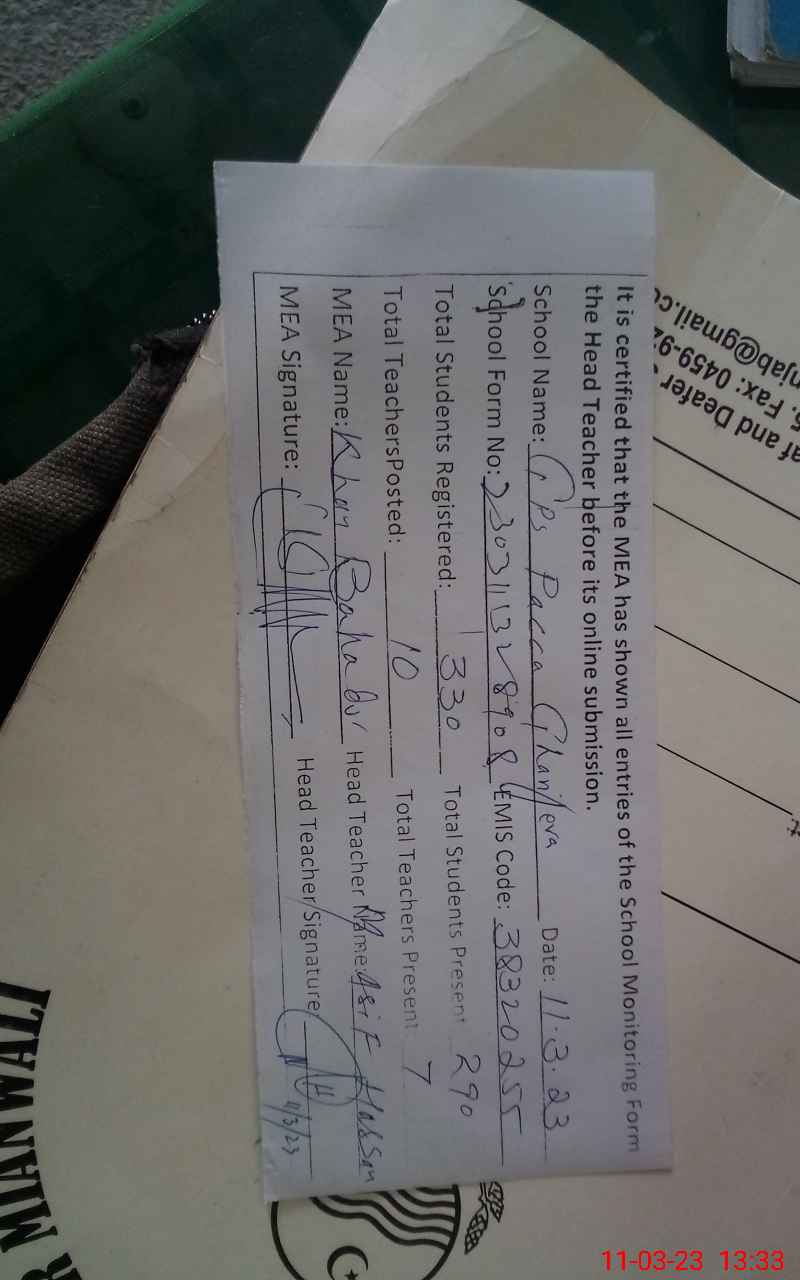 It is certified that the MEA has shown all entries of the School Monitoring Form
the Head Teacher before its online submission.
School Name: GPS Pacca Ghanjera Date: 11.3.23
School Form No: 230311328908 EMIS Code: 38320255
Total Students Registered: 330 Total Students Present 290
Total TeachersPosted: 10 Total Teachers Present 7
MEA Name: Khan Bahadur Head Teacher Name Asif Hassan
MEA Signature: Head Teacher Signature 11/3/23
af and Deafer
Fax: 0459-92
njab@gmail.co
R MIANWALI
11-03-23 13:33